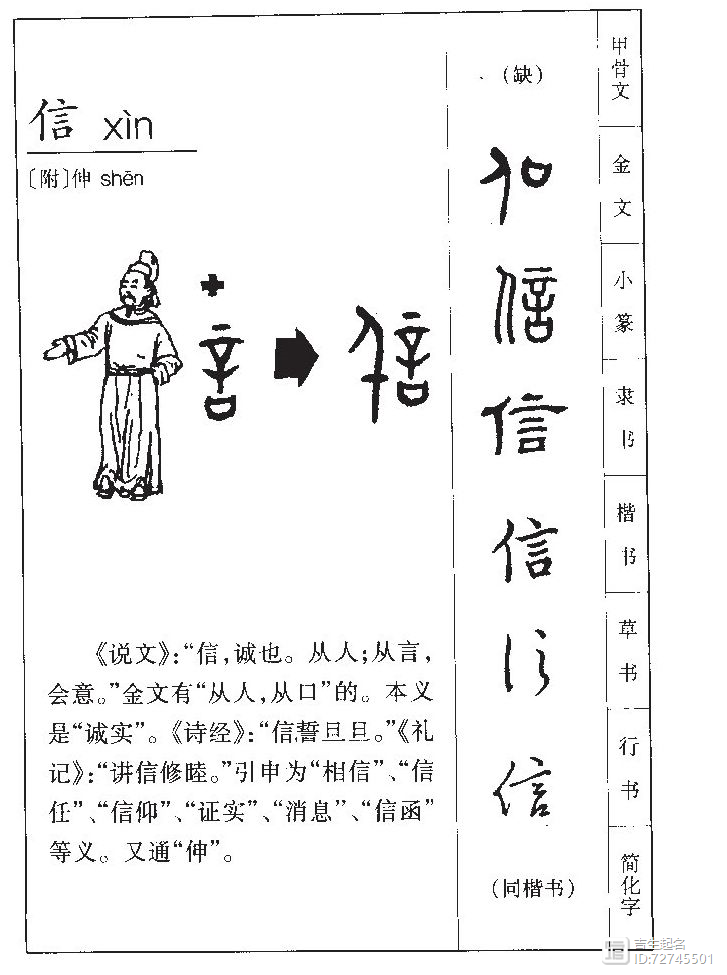 信 xìn
〔附〕伸 shēn
《说文》:“信,诚也。从人;从言,
会意。”金文有“从人,从口”的。本义
是“诚实”。《诗经》:“信誓旦旦。”《礼
记》:“讲信修睦。”引申为“相信”、“信
任”、“信仰”、“证实”、“消息”、“信函”
等义。又通“伸”。
(缺)
信
信
信
信
信
信
(同楷书)
甲骨文
金文
小篆
隶书
楷书
草书
行书
简化字
吉生起名
ID:72745501